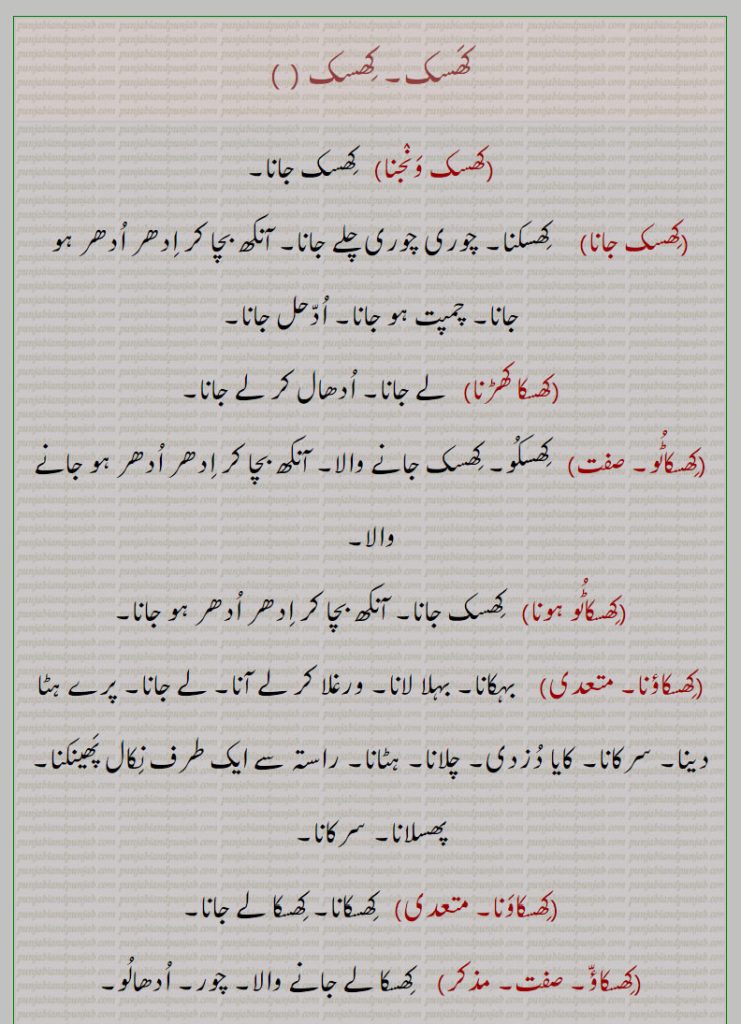 کھَسک۔ کھِسک ( )
(کھِسک وَنْجنا) کھِسک جانا۔
(کھِسک جانا) کھِسکنا۔ چوری چوری چلے جانا۔ آنکھ بچا کر اِدھر اُدھر ہو
جانا۔ چمپت ہو جانا۔ اُدّھل جانا۔
(کھِسکا کھَڑنا) لے جانا۔ اُدھال کر لے جانا۔
(کھِسکاٹُو۔ صفت) کھِسکُو۔ کھِسک جانے والا۔ آنکھ بچا کر اِدھر اُدھر ہو جانے
والا۔
(کھِسکاٹُو ہونا) کھِسک جانا۔ آنکھ بچا کر اِدھر اُدھر ہو جانا۔
(کھِسکاؤنا۔ متعدی) بہکانا۔ بہلا لانا۔ ورغلا کر لے آنا۔ لے جانا۔ پرے ہٹا
دینا۔ سرکانا۔ کایا دُزدی۔ چلانا۔ ہٹانا۔ راستہ سے ایک طرف نِکال پَھینکنا۔
پھسلانا۔ سرکانا۔
(کھِسکاوَنا۔ متعدی) کھِسکانا۔ کھِسکا لے جانا۔
(کھِسکاؤّ۔ صفت۔ مذکر) کھِسکا لے جانے والا۔ چور۔ اُدھالُو۔